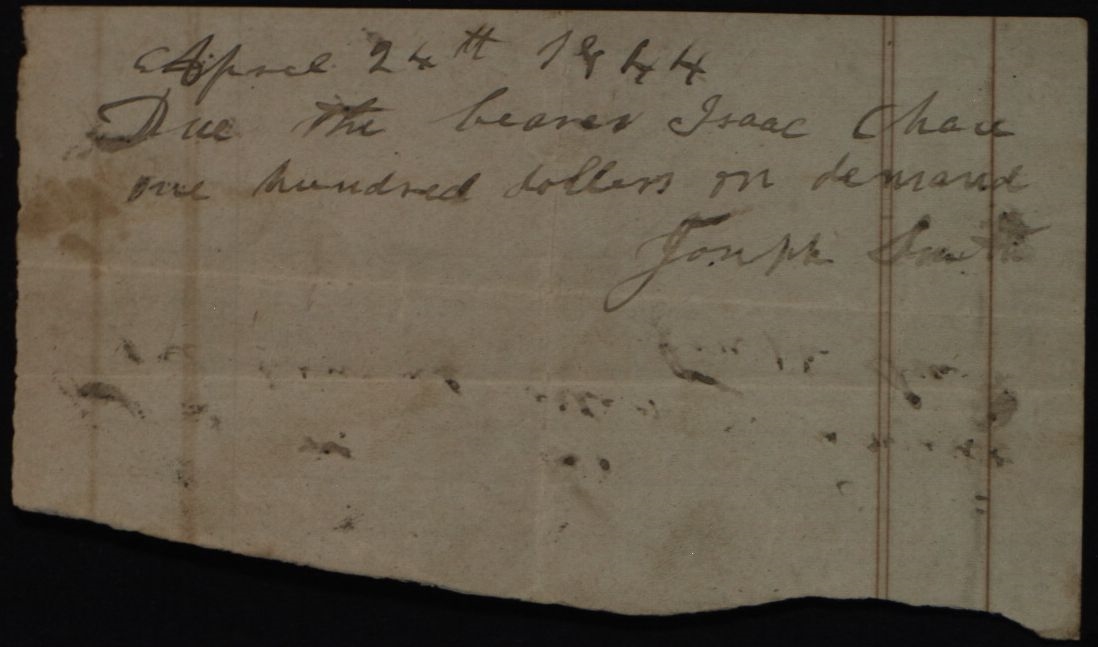 April 24th 1844
Due the bearer Isaac Chace
one hundred dollers on demand
Joseph Smith